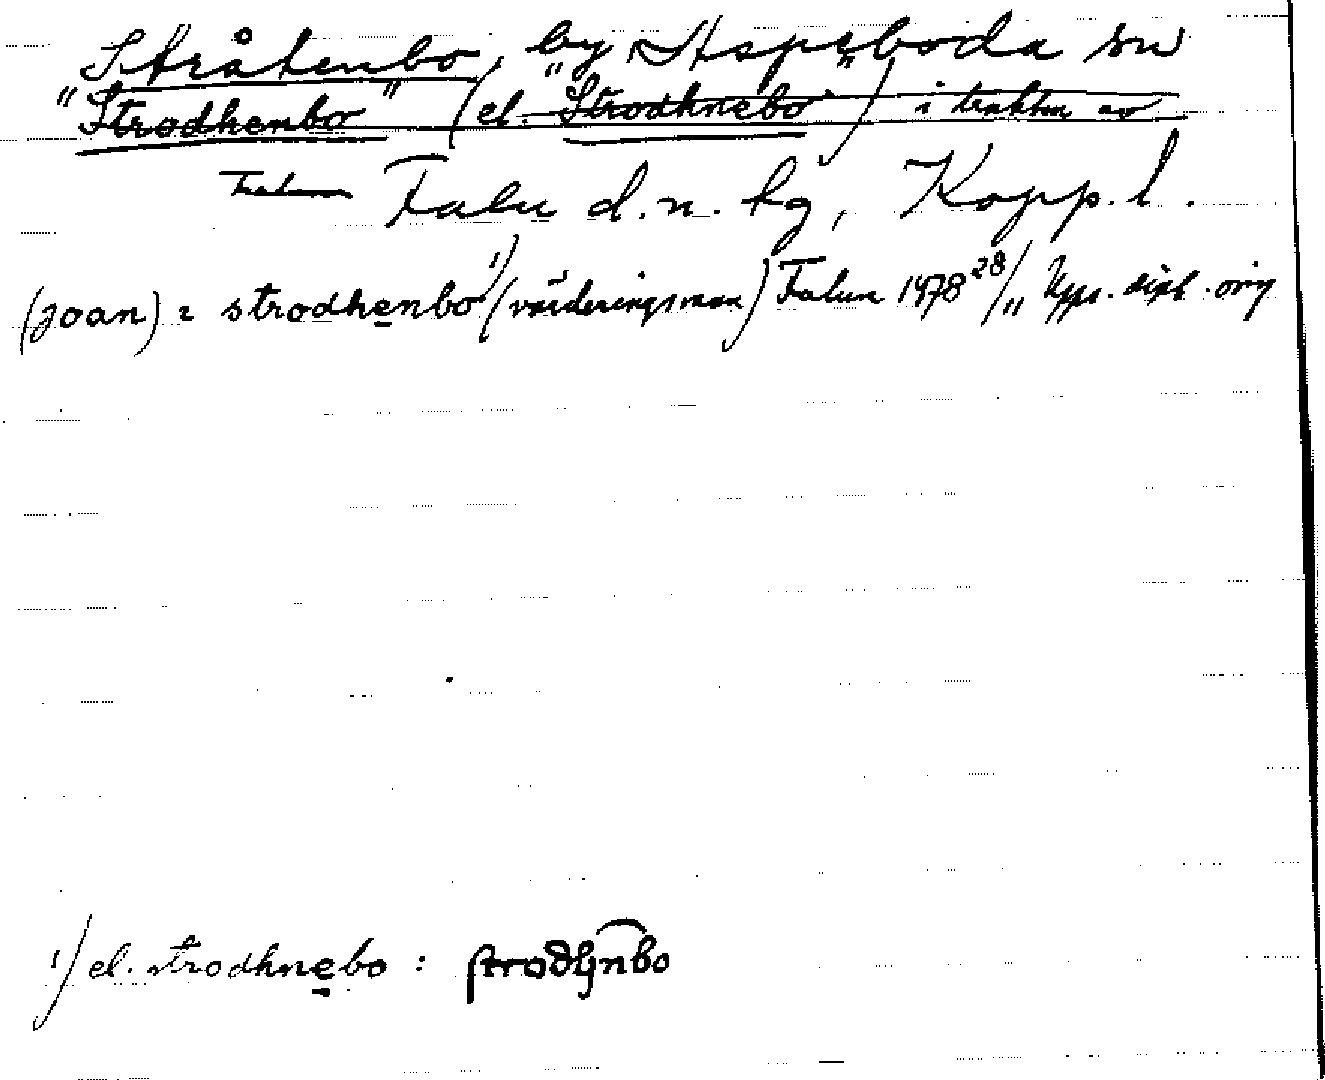 Stråtenbo, by Aspeboda sn
"Strodhenbo" (el. "Strodhnebo") i trakten av
Falun Falu d.n. hg, Kopp. l.
(joan) i strodhenbo 1) (värderingsman) Falun 1478 28/11 Upps. dipl. orig
1) el. strodhnebo : strodhnbo